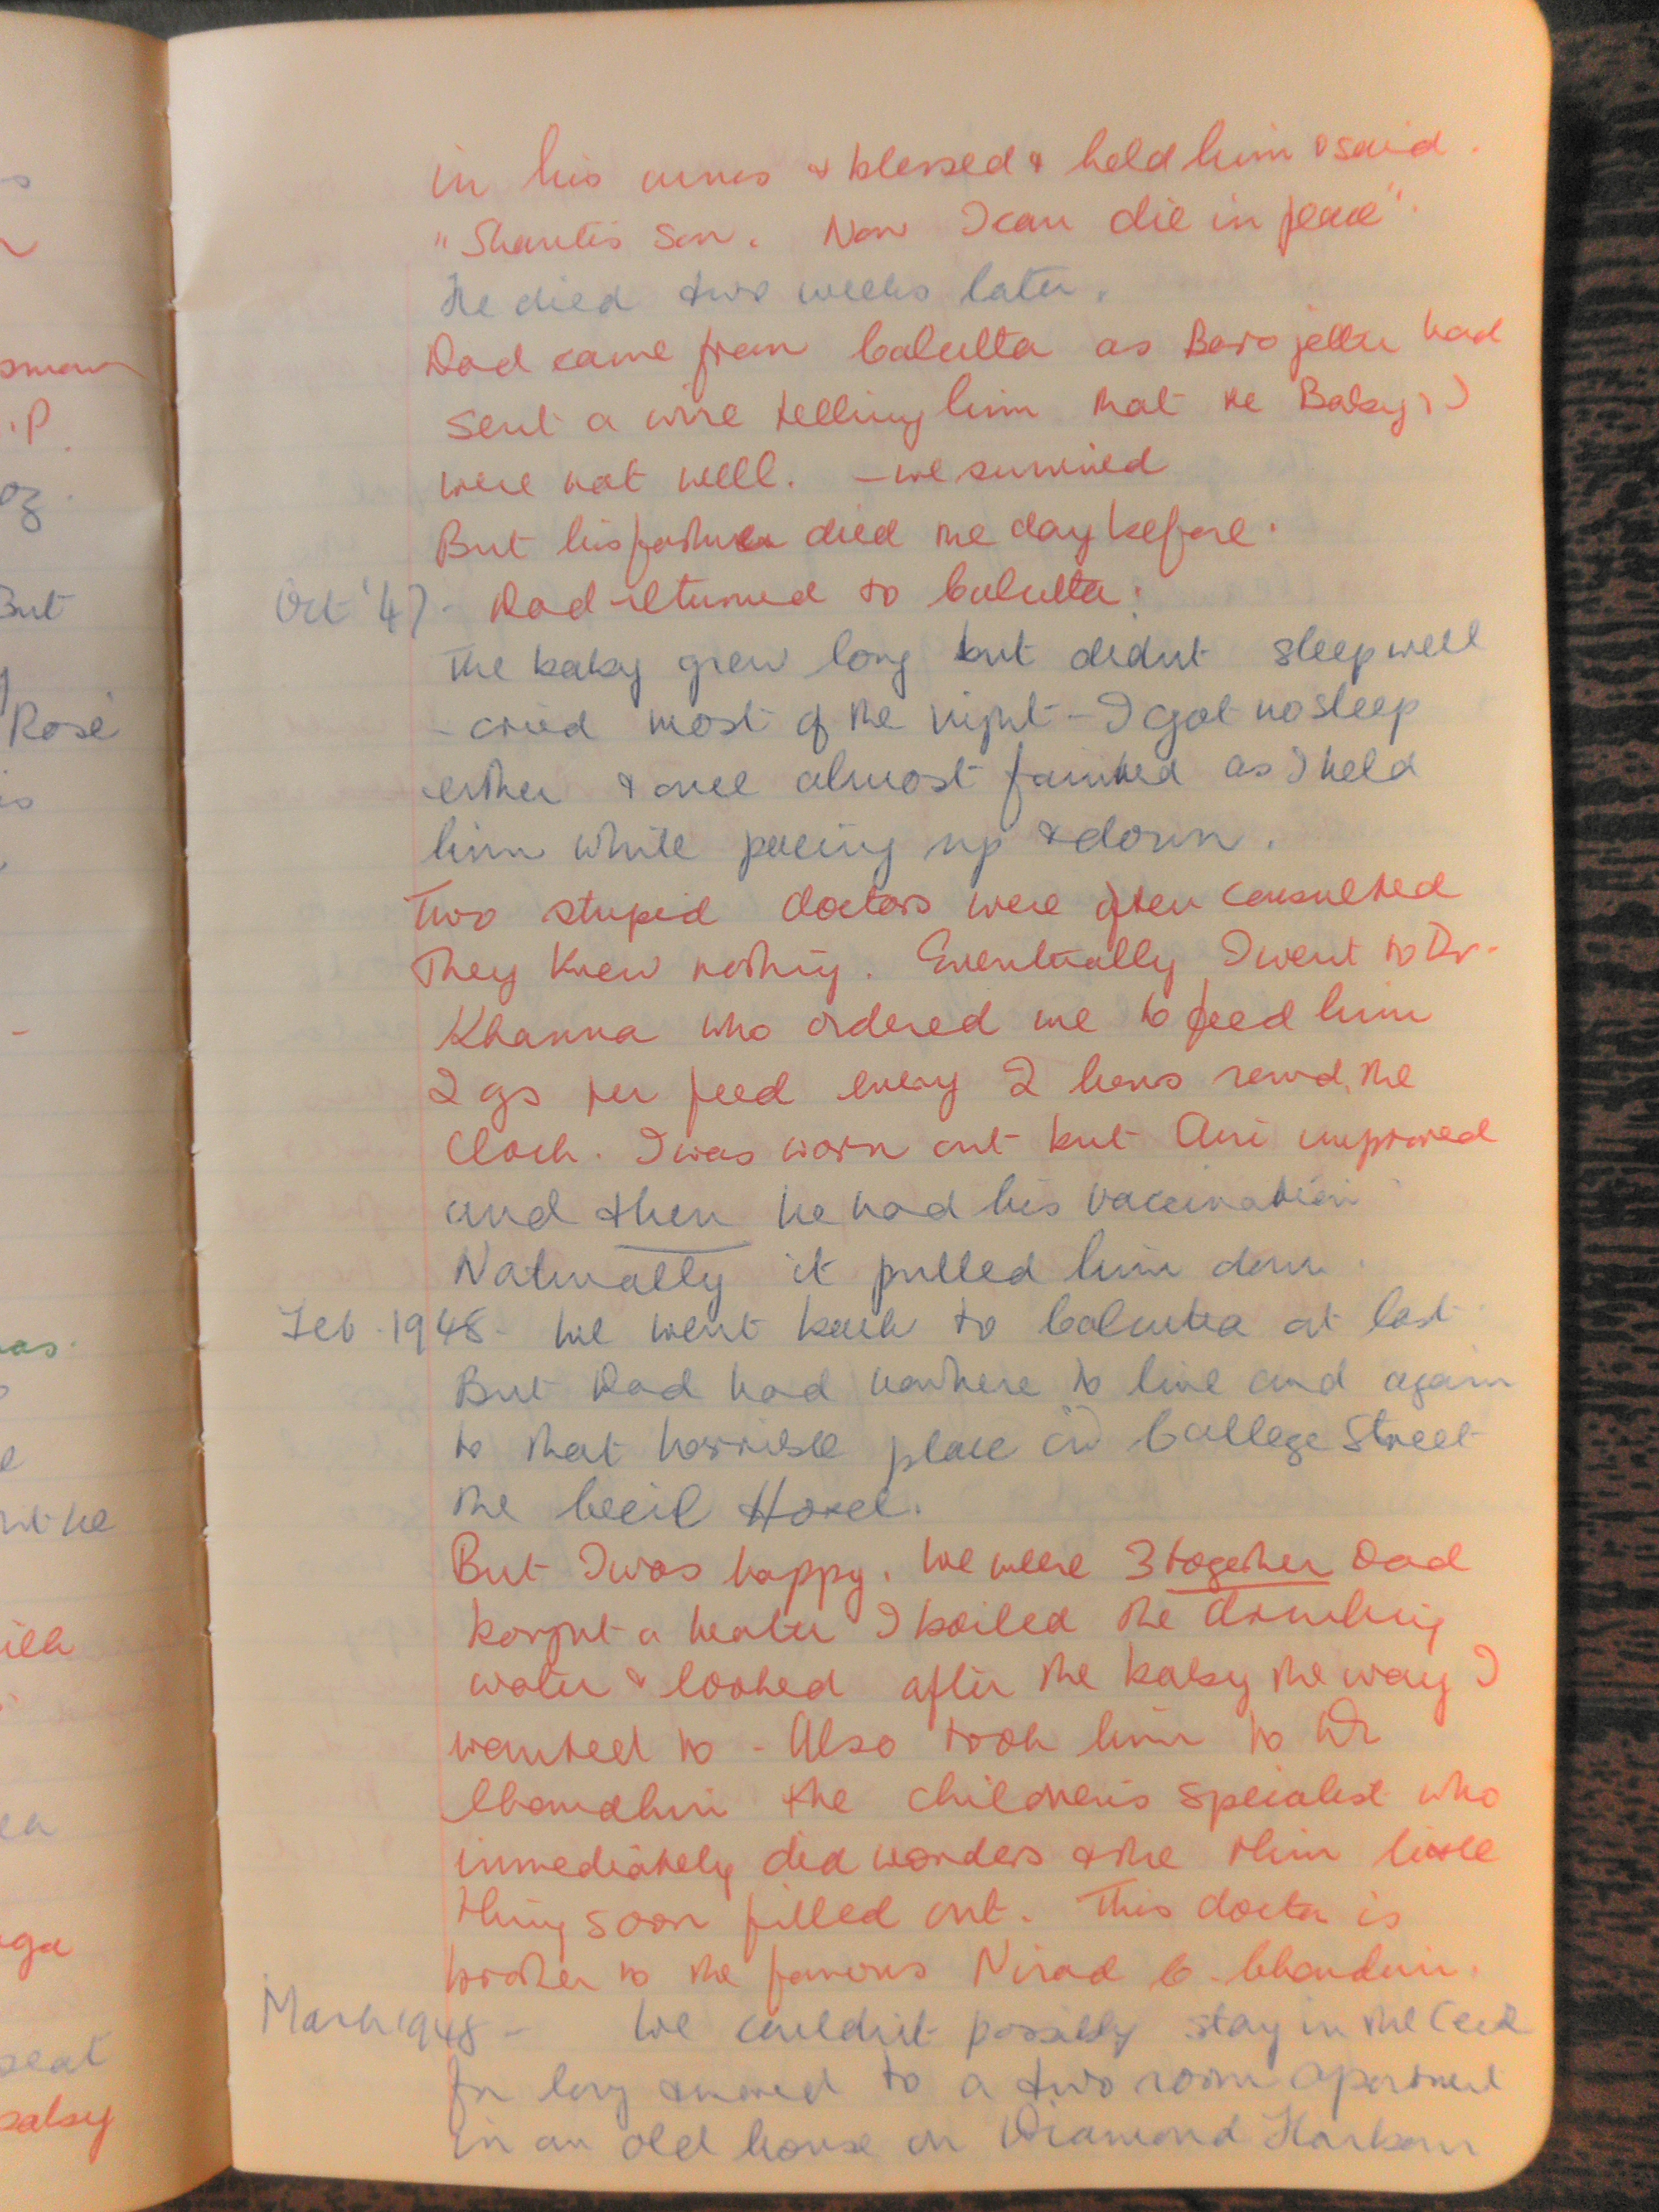 in his arms & blessed & held him & said.
"Shanti's son. Now I can die in peace".
He died two weeks later.
Dad came from Calcutta as Baro jethu had
sent a wire telling him that the Baby & I
were not well. – we survived
But his father died the day before.
Oct '47 - Dad returned to Calcutta.
The baby grew long but didnt sleep well
- cried most of the night - I got no sleep
either & once almost fainted as I held
him while pacing up & down.
Two stupid doctors were often consulted
They knew nothing. Eventually I went to Dr.
Khanna who ordered me to feed him
2 ozs per feed every 2 hours round the
clock. I was worn out but Ani improved
and then he had his vaccination
Naturally it pulled him down.
Feb. 1948 - We went back to Calcutta at last.
But Dad had nowhere to live and again
to that horrible place in College Street
the Cecil Hotel.
But I was happy. We were 3 together Dad
bought a heater I boiled the drinking
water & looked after the baby the way I
wanted to - Also took him to Dr
Chaudhuri the children's specialist who
immediately did wonders & the thin little
thing soon filled out. This doctor is
brother to the famous Nirad C. Chaudhuri.
March 1948 - We couldn't possibly stay in the Cecil
for long & moved to a two room apartment
in an old house on Diamond Harbour
But
Rosé